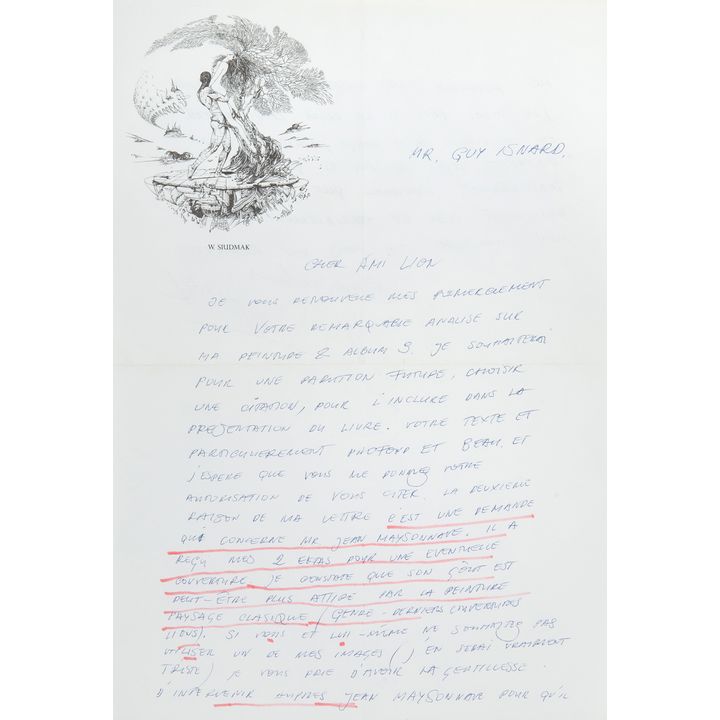 W. SIUDMAK
MR, GUY ISNARD,
CHER AMI LION
JE VOUS RENOUVELLE MES
POUR VOTRE REMARQUABLE ANALISE SUR
MA PEINTURE & ALBUM 3. JE SOUHAITERAI
POUR UNE PARUTION FUTURE, CHOISIR
UNE CITATION, POUR L'INCLURE DANS LA
PRESENTATION DU LIVRE. VOTRE TEXTE ET
PARTICULIEREMENT PROFOND ET BEAU. ET
J'ESPERE QUE VOUS ME DONNEZ VOTRE
AUTORISATION DE VOUS CITER. LA DEUXIEME
RAISON DE MA LETTRE C'EST UNE DEMANDE
QUI CONCERNE MR JEAN MAYSONNAVE. IL A
REÇU MES 2 EKTAS POUR UNE EVENTUELLE
COUVERTURE) JE CONSTATE QUE SON GÔUT EST
PEUT-ÊTRE PLUS ATTIRE PAR LA PEINTURE
PAYSAGE CLASIQUE (GENRE-DERNIERS COUVERTURES
LIONS). SI VOUS ET LUI-MÊME NE SOUHAITEZ PAS
UTILISER UN DE MES IMAGES (J'EN SERAI VRAIMENT
TRISTE) JE VOUS PRIE D'AVOIR LA GENTILLESSE
D'INTERVENIR AUPRES JEAN MAYSONNAVE POUR QU'IL